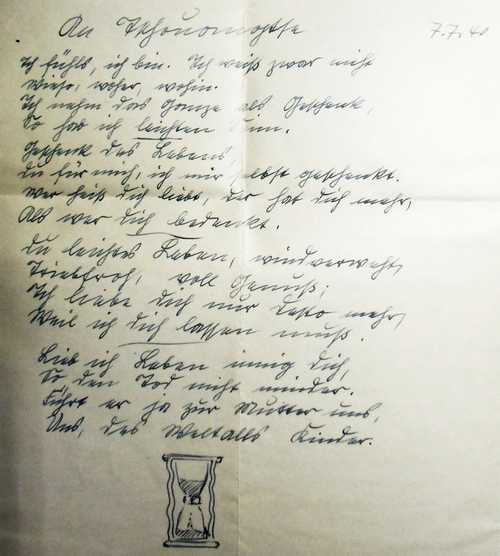 An Tschuomogtse 7.7.40
Ich fühls, ich bin. Ich weiß zwar nicht
Wieso, woher, wohin.
Ich nehm das Ganze als Geschenk,
So hab ich leichten Sinn.
Geschenk des Lebens,
du für mich, ich mir selbst geschenkt.
Wer heiß dich liebt, der hat dich mehr,
Als wer dich bedenkt.
Du leichtes Leben, windverweht,
Triebfroh, voll Genuß;
Ich liebe dich nur desto mehr,
Weil ich dich lassen muß.
Lieb ich Leben innig dich,
So den Tod nicht minder.
Führt er ja zur Mutter uns,
Uns, des Weltalls Kinder.